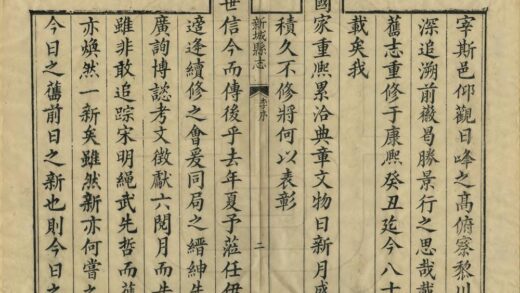 宰斯邑仰觀日峰之髙俯察黎川
深追溯前徽曷勝景行之思哉
舊志重修于康熈癸丑迄今八十
載矣我
國家重熈累洽典章文物日新月盛
積久不修將何以表彰
新城縣志 李序 二
世信今而傳後乎去年夏予蒞任伊
適逢續修之會爰同局之縉紳
廣詢博諮考文徵獻六閱月而
雖非敢追踪宋明繩武先哲而舊
亦煥然一新矣雖然新亦何嘗之
今日之舊前日之新也則今日之